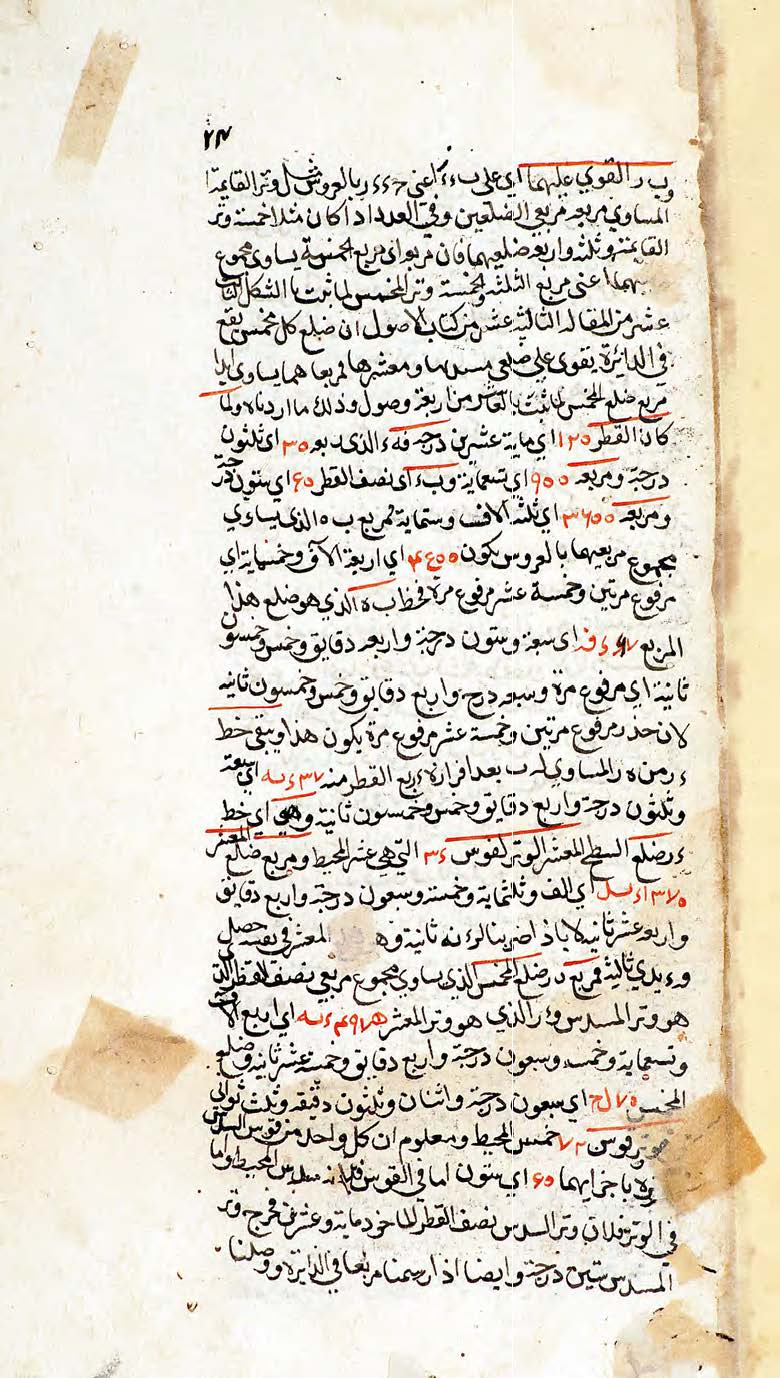 ٢٤
وب ر القوي عليهما اي على ب ء ء اعني ح ء ء ر بالعروش مثل وتر القائمة
المساوي مربعه مربعي الضلعين وفي العدد اذا كان مثلا خمسة وتر
القائمة وثلثه واربعه ضلعيهما فان مربع اي مربع الخمسة يساوي مجموع
اعني مربع الثلثه وتر المخمس لما ثبت بالشكل
عشر من المقاله الثالثه عشر من كتاب الاصول ان ضلع كل مخمس يقع
في الدائرة يقوي على ضلعي مسدسها ومعشرها فمربعا هما يساوي
مربع ضلع المخمس لما ثبت من اربعة وصول وذلك ما اردناه ولما
كان القطر ١٢٥ اي مايه عشرين درجه ء الذي ٣٥ اي ثلثون
درجة ومربعه ٩٥٥ اي تسعماية وب ء اي نصف القطر ٦٥ اي ستون درجة
ومربعه ٣٦٥٥ اي ثلثه الاف وستماية فمربع ب ه الذي يساوي
مجموع مربعيهما بالعروس يكون ٤٥٥٥ اي اربعة الاف وخمسماية اي
مرفوع مرتين وخمسة عشر مرفوع مرة فخط ب ه الذي هو ضلع هذا
المربع ٦٧ اي سبعة وستون درجة واربعه دقايق وخمس وخمسون
ثانية اي مرفوع مرة وسبعه درج واربع دقايق وخمس وخمسون ثانيه
لان جذر مرفوع مرتين وخمسة عشر مرفوع مرة يكون هذا ويبقى خط
ء ر من ه ر المساوي له ب بعد افراز ه ء ربع القطر منه ٣٧ ء نه اي سبعة
وثلثون درجة واربع دقايق وخمس وخمسون ثانية وهي اي خط
ء ر ضلع السطح المعشر الوتر لقوس ٣٦ التي هي عشر المحيط ومربع ضلع المعشر
١٣٧٥ اي الف وثلثماية وخمسة وسبعون درجة واربع دقايق
واربعه عشر ثانيه لانا اذا ضربنا لز ء نه ثانية وهو المعشر في نفسه حصل
ثالثه فمربع د ر ضلع المخمس الذي يساوي مجموع مربعي نصف القطر الذي
هو وتر المسدس و ء ر الذي هو وتر المعشر ٤٩٧٥ ء يه اي اربع الاف
وتسعماية وخمس وسبعون درجة واربع دقايق وخمسة عشر ثانيه وضلع
المخمس ٧٥ لب ج اي سبعون درجة واثنان وثلثون دقيقه وثلث ثواني
موتر قوس ٧٢ خمس المحيط ومعلوم ان كل واحد من قوس السدس
وتره باجزايهما ٦٥ اي ستون اما في القوس فلانه سدس المحيط واما
في الوتر فلان وتر السدس نصف القطر الماخوذ مايه وعشرين فخرج وتر
المسدس ستين درجة وايضا اذا رسمنا مربعا في الدائرة ووصلنا